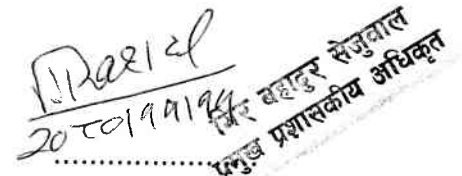 २०८०।११।११
बहादुर सेजुवाल
प्रमुख प्रशासकीय अधिकृत